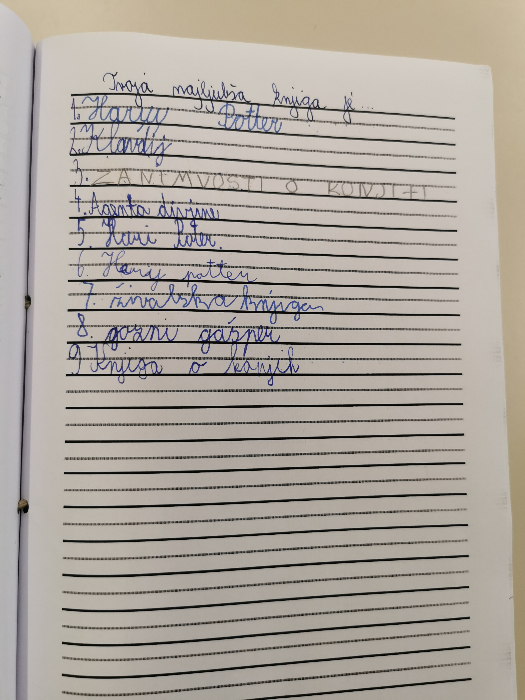 Tvoja najljubša knjiga je...
1. Harry Potter
2. Klavdij
3. ZANIMVOSTI O KONJIHI
4. Agenta divjine
5. Hari Poter.
6. Harij potter
7. živalska knjiga
8. gozni gašper
9 Knjiga o konjih